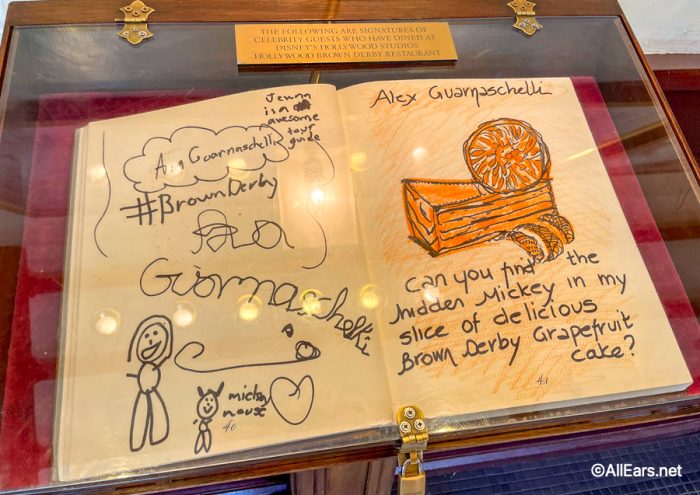 THE FOLLOWING ARE SIGNATURES OF
CELEBRITY GUESTS WHO HAVE DINED AT
DISNEY'S HOLLYWOOD STUDIOS
HOLLYWOOD BROWN DERBY RESTAURANT
Jenna
is a
awesome
tour
guide
Guarnaschelli
#BrownDerby
mickey
mouse
40
Alex Guarnaschelli
Can you find the
hidden Mickey in my
slice of delicious
Brown Derby Grapefruit
cake?
41
©AllEars.net